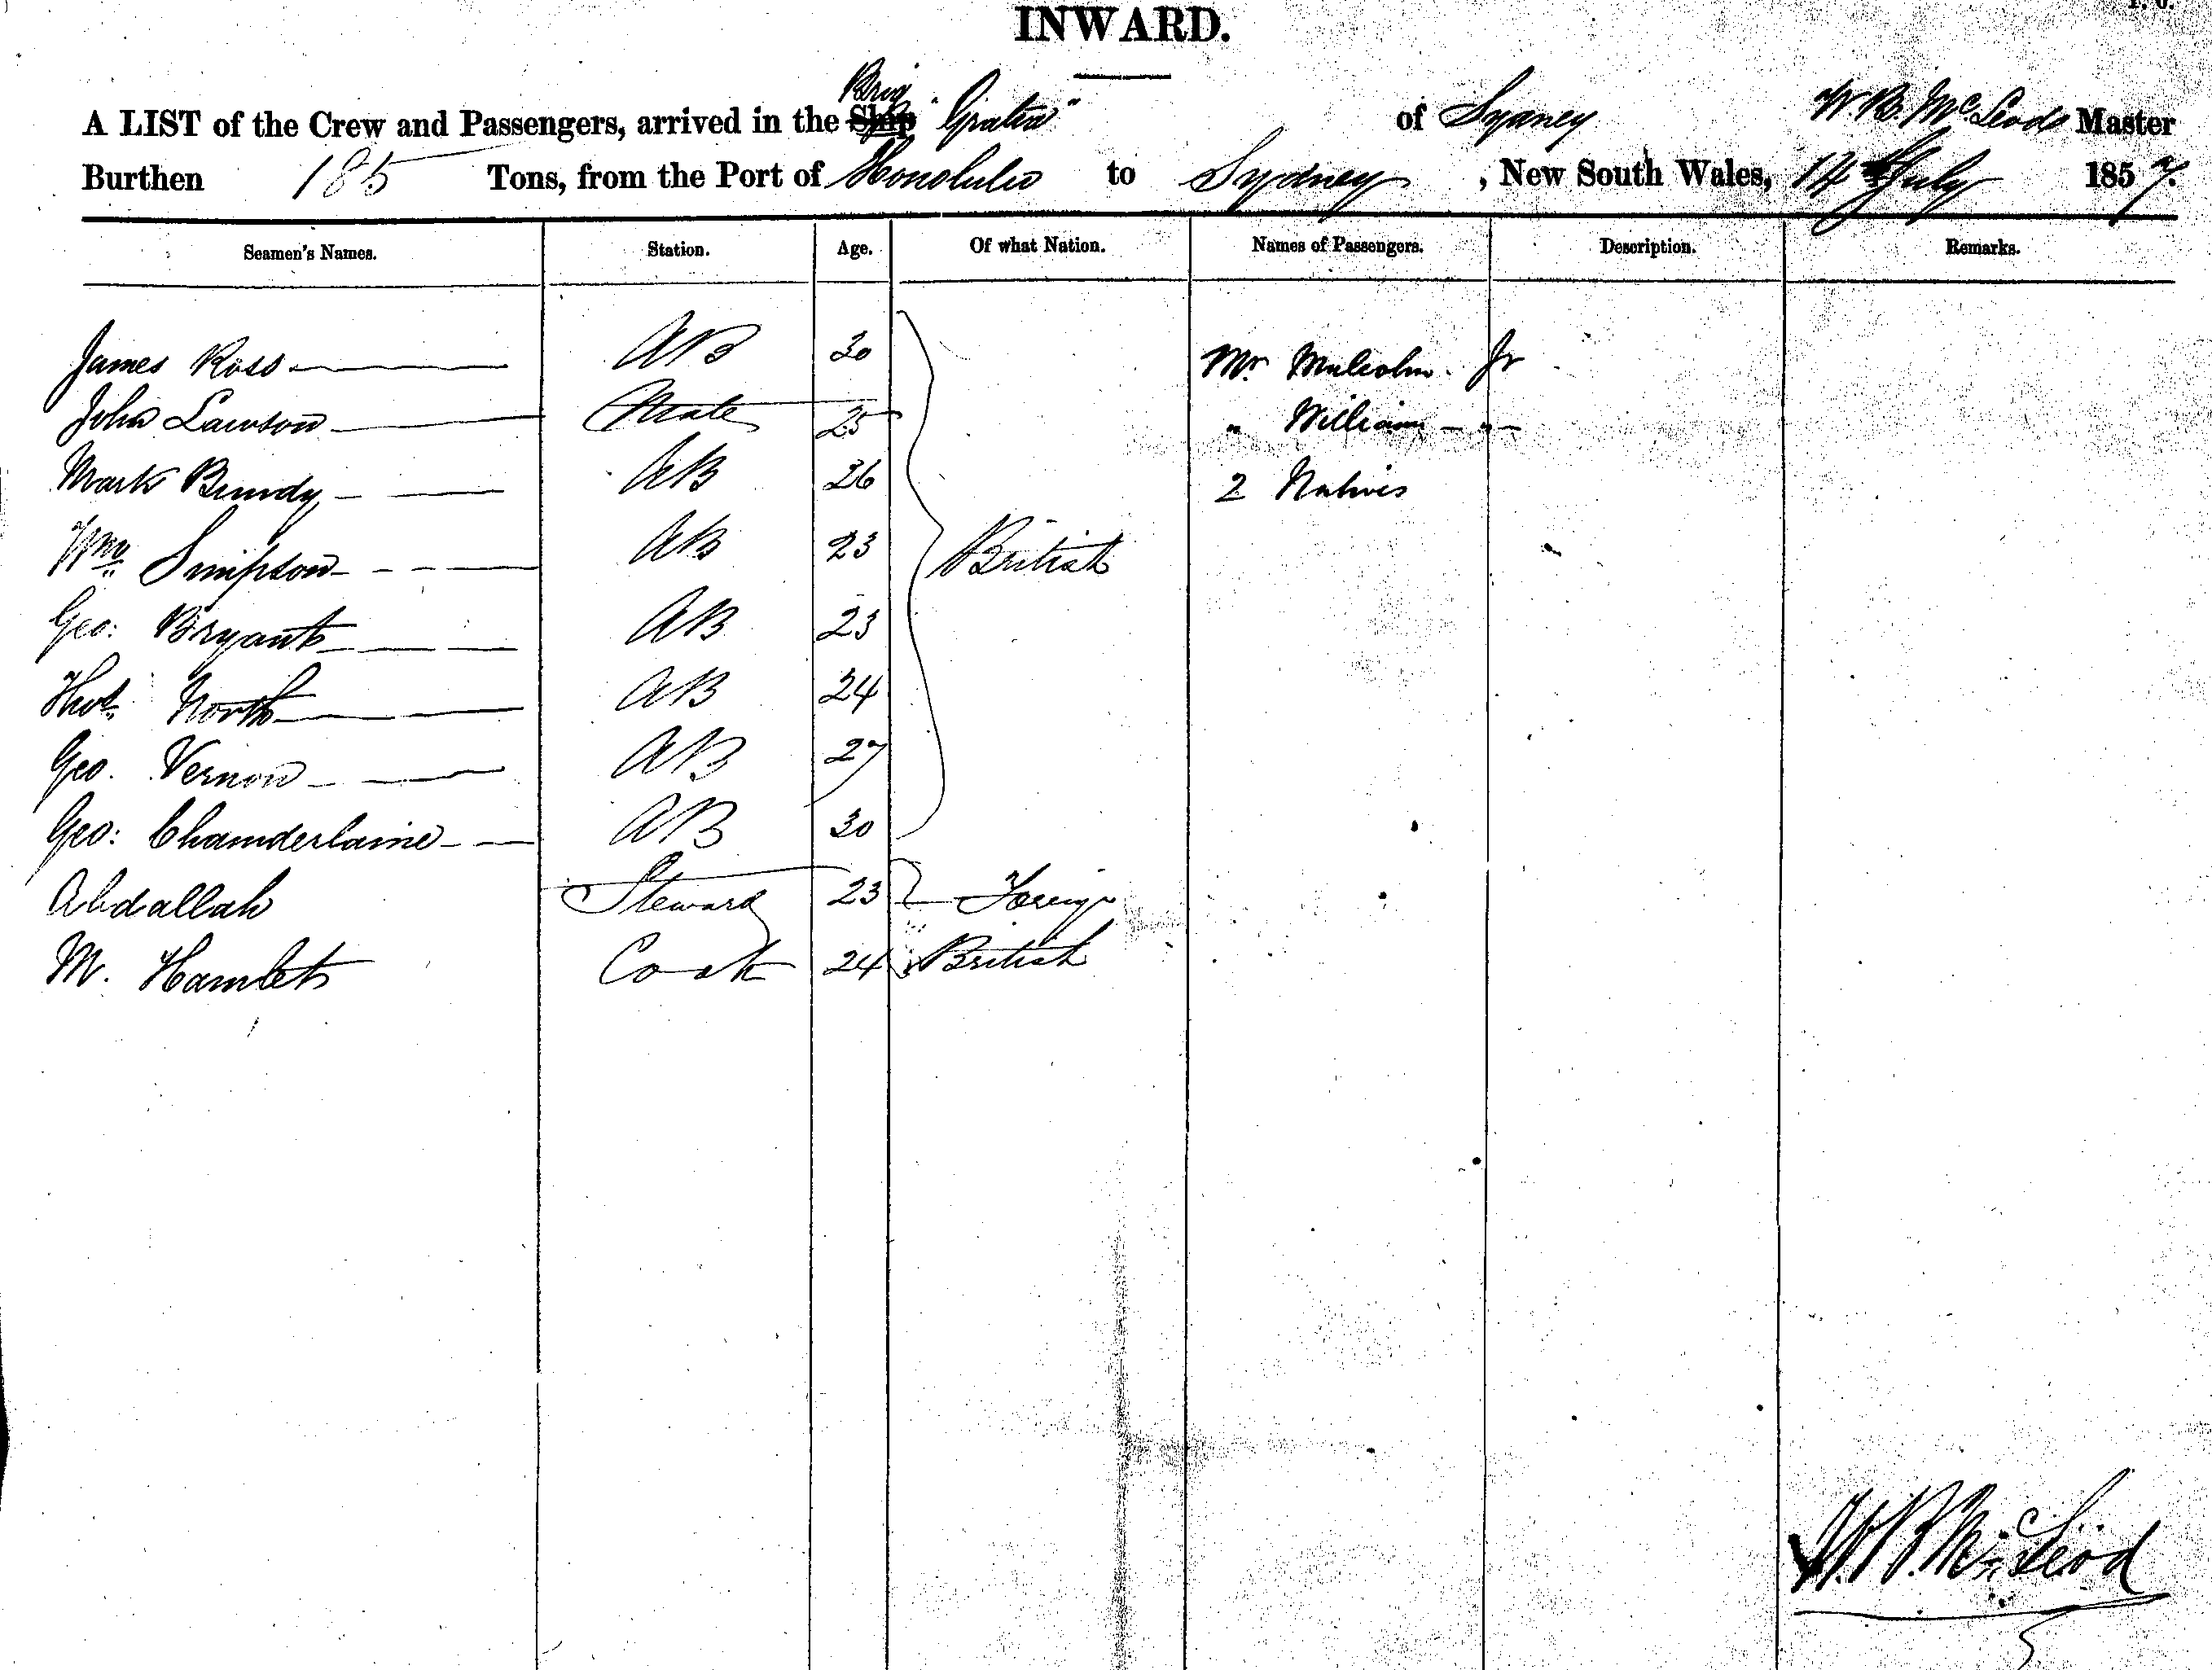 INWARD.
A LIST of the Crew and Passengers, arrived in the Brig "Gratia" of Sydney W. B. McLeod Master
Burthen 185 Tons, from the Port of Honolulu to Sydney, New South Wales, 14th July 1857.
Seamen's Names. Station. Age. Of what Nation. Names of Passengers. Description. Remarks.
James Ross AB 30 Mr. Malcolm Jr
John Lawson Mate 25 " William - " -
Mark Bundy AB 26 2 Natives
Wm Simpson AB 23 British
Geo: Bryant AB 23
Thos. North AB 24
Geo. Vernon AB 27
Geo: Chamderlaine AB 30
Abdallah Steward 23 Foreign
M. Hamlet Cook 24 British
W. B. McLeod